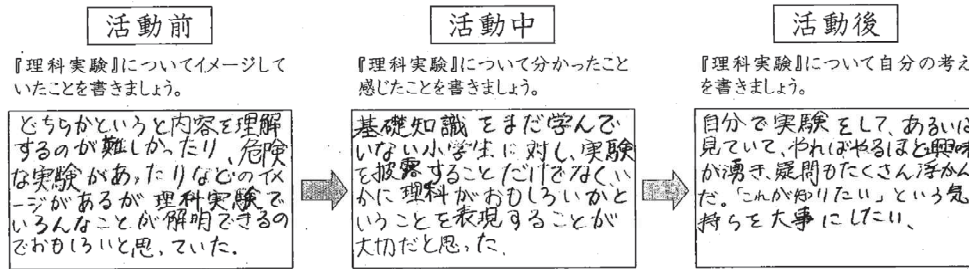 活動前
『理科実験』についてイメージして
いたことを書きましょう。
どちらかというと内容を理解
するのが難しかったり、危険
な実験があったりなどのイメ
ージがあるが理科実験で
いろんなことが解明できるの
でおもしろいと思っていた。
活動中
『理科実験』について分かったこと
感じたことを書きましょう。
基礎知識をまだ学んで
いない小学生に対し、実験
を披露することだけでなく、い
かに理科がおもしろいかと
いうことを表現することが
大切だと思った。
活動後
『理科実験』について自分の考え
を書きましょう。
自分で実験をして、あるいは
見ていて、やればやるほど興味
が湧き、疑問もたくさん浮かん
だ。「これが知りたい」という気
持ちを大事にしたい。